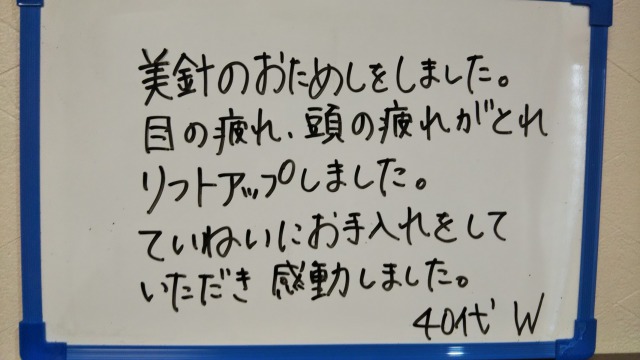 美針のおためしをしました。
目の疲れ、頭の疲れがとれ
リフトアップしました。
ていねいにお手入れをして
いただき感動しました。
40代 W